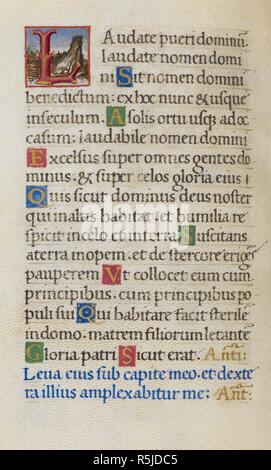 Laudate pueri dominū.
laudate nomen domi
ni Sit nomen domini
benedictum: ex hoc nunc & usque
in seculum. A solis ortu usq; ad oc
casum: laudabile nomen domini
Excelsus super omnes gentes do
minus: & super celos gloria eius
Quis sicut dominus deus noster
qui in altis habitat: et humilia re
spicit in celo et in terra. Suscitans
a terra inopem: et de stercore eriges
pauperem Ut collocet eum cum
principibus: cum principibus po
puli sui Qui habitare facit sterilē
in domo: matrem filiorum letante
Gloria patri Sicut erat. Anti:
Leua eius sub capite meo: et dexte
ra illius amplexabitur me: Ant:
alamy stock photo
R5JDC5
www.alamy.com